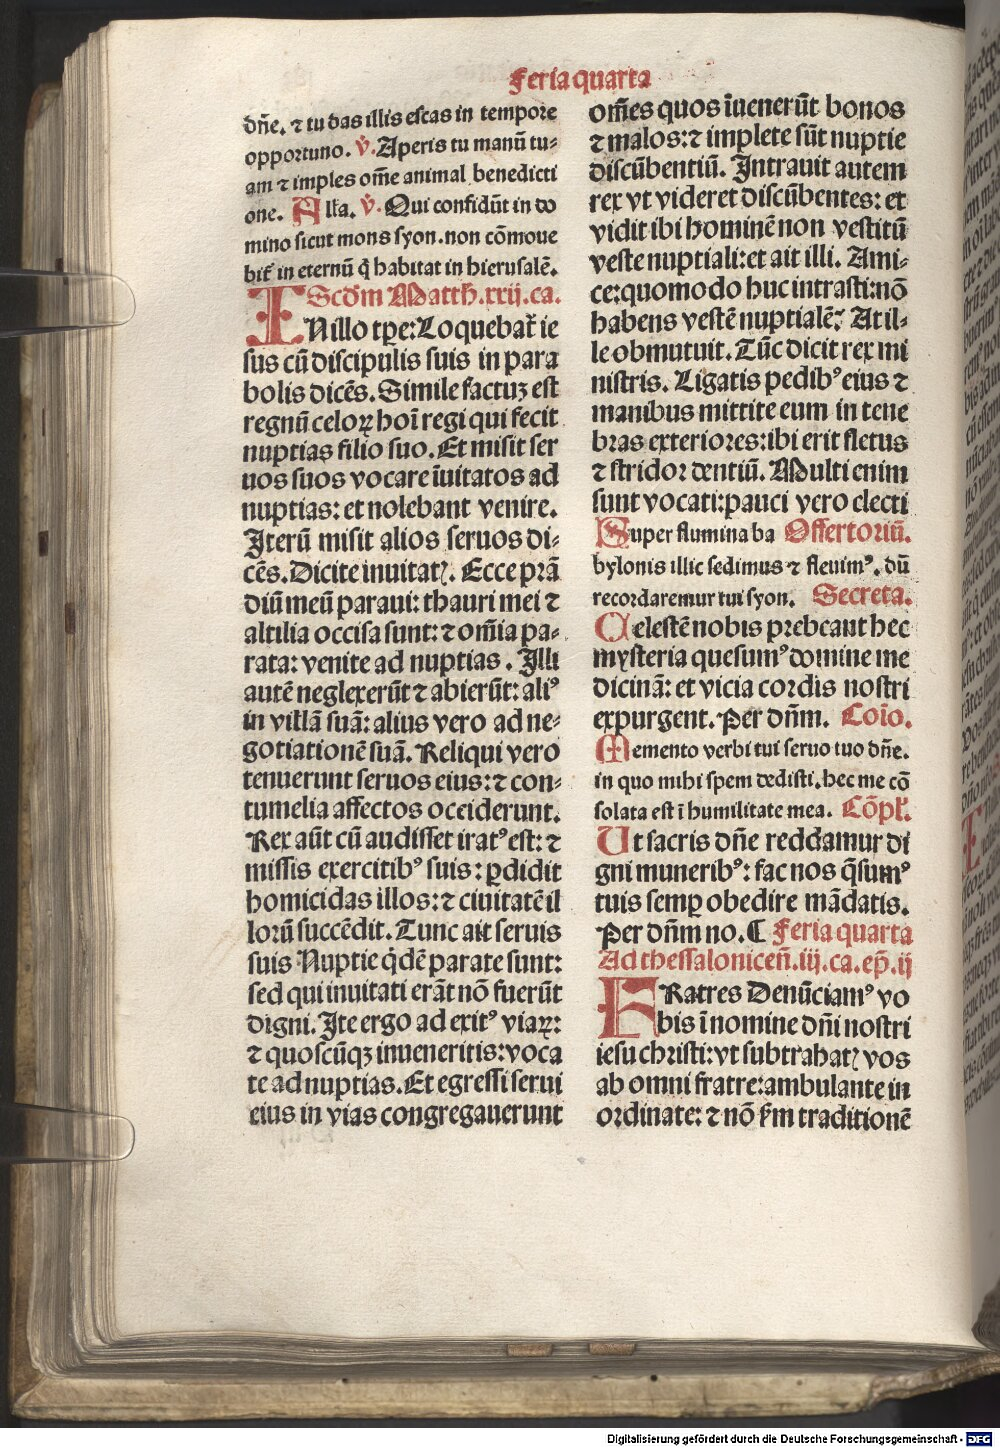 Feria quarta
dñe. ⁊ tu das illis escas in tempore
opportuno. ℣. Aperis tu manũ tu⸗
am ⁊ imples om̃e animal benedicti
one. Alła. ℣. Qui confidũt in do
mino sicut mons syon. non cõmoue
bit᷑ in eternũ q̃ habitat in hierusalẽ.
Scd̃m Matth. xxij. ca.
IN illo tp̃e: Loquebat᷑ ie
sus cũ discipulis suis in para
bolis dicẽs. Simile factuꝫ est
regnũ celoꝝ hoĩ regi qui fecit
nuptias filio suo. Et misit ser
uos suos vocare ĩuitatos ad
nuptias: et nolebant venire.
Iterũ misit alios seruos di⸗
cẽs. Dicite inuitat᷑. Ecce prã
diũ meũ paraui: thauri mei ⁊
altilia occisa sunt: ⁊ om̃ia pa⸗
rata: venite ad nuptias. Illi
autẽ neglexerũt ⁊ abierũt: aliꝰ
in villã suã: alius vero ad ne⸗
gotiationẽ suã. Reliqui vero
tenuerunt seruos eius: ⁊ con⸗
tumelia affectos occiderunt.
Rex aũt cũ audisset iratꝰ est: ⁊
missis exercitibꝰ suis: ꝑdidit
homicidas illos: ⁊ ciuitatẽ il
lorũ succẽdit. Tunc ait seruis
suis Nuptie q̃dẽ parate sunt:
sed qui inuitati erãt nõ fuerũt
digni. Ite ergo ad exitꝰ viaꝝ:
⁊ quoscũqꝫ inueneritis: voca
te ad nuptias. Et egressi serui
eius in vias congregauerunt
om̃es quos ĩuenerũt bonos
⁊ malos: ⁊ implete sũt nuptie
discũbentiũ. Intrauit autem
rex vt videret discũbentes: et
vidit ibi hominẽ non vestitũ
veste nuptiali: et ait illi. Ami⸗
ce: quomodo huc intrasti: nõ
habens vestẽ nuptialẽ? At il⸗
le obmutuit. Tũc dicit rex mi
nistris. Ligatis pedibꝰ eius ⁊
manibus mittite eum in tene
bras exteriores: ibi erit fletus
⁊ stridor dentiũ. Multi enim
sunt vocati: pauci vero electi
Super flumina ba Offertoriũ.
bylonis illic sedimus ⁊ fleuimꝰ. dũ
recordaremur tui syon. Secreta.
Celestẽ nobis prebeant hec
mysteria quesumꝰ domine me
dicinã: et vicia cordis nostri
expurgent. Per dñm. Coĩo.
Memento verbi tui seruo tuo dñe.
in quo mihi spem dedisti. hec me cõ
solata est ĩ humilitate mea. Cõpł.
Ut sacris dñe reddamur di
gni muneribꝰ: fac nos q̃sumꝰ
tuis semꝑ obedire mãdatis.
Per dñm no. ¶ Feria quarta
Ad thessaloniceñ. iij. ca. ep̃. ij
FRatres Denũciamꝰ vo
bis ĩ nomine dñi nostri
iesu christi: vt subtrahat᷑ vos
ab omni fratre: ambulante in
ordinate: ⁊ nõ s̃m traditionẽ
Digitalisierung gefördert durch die Deutsche Forschungsgemeinschaft - DFG